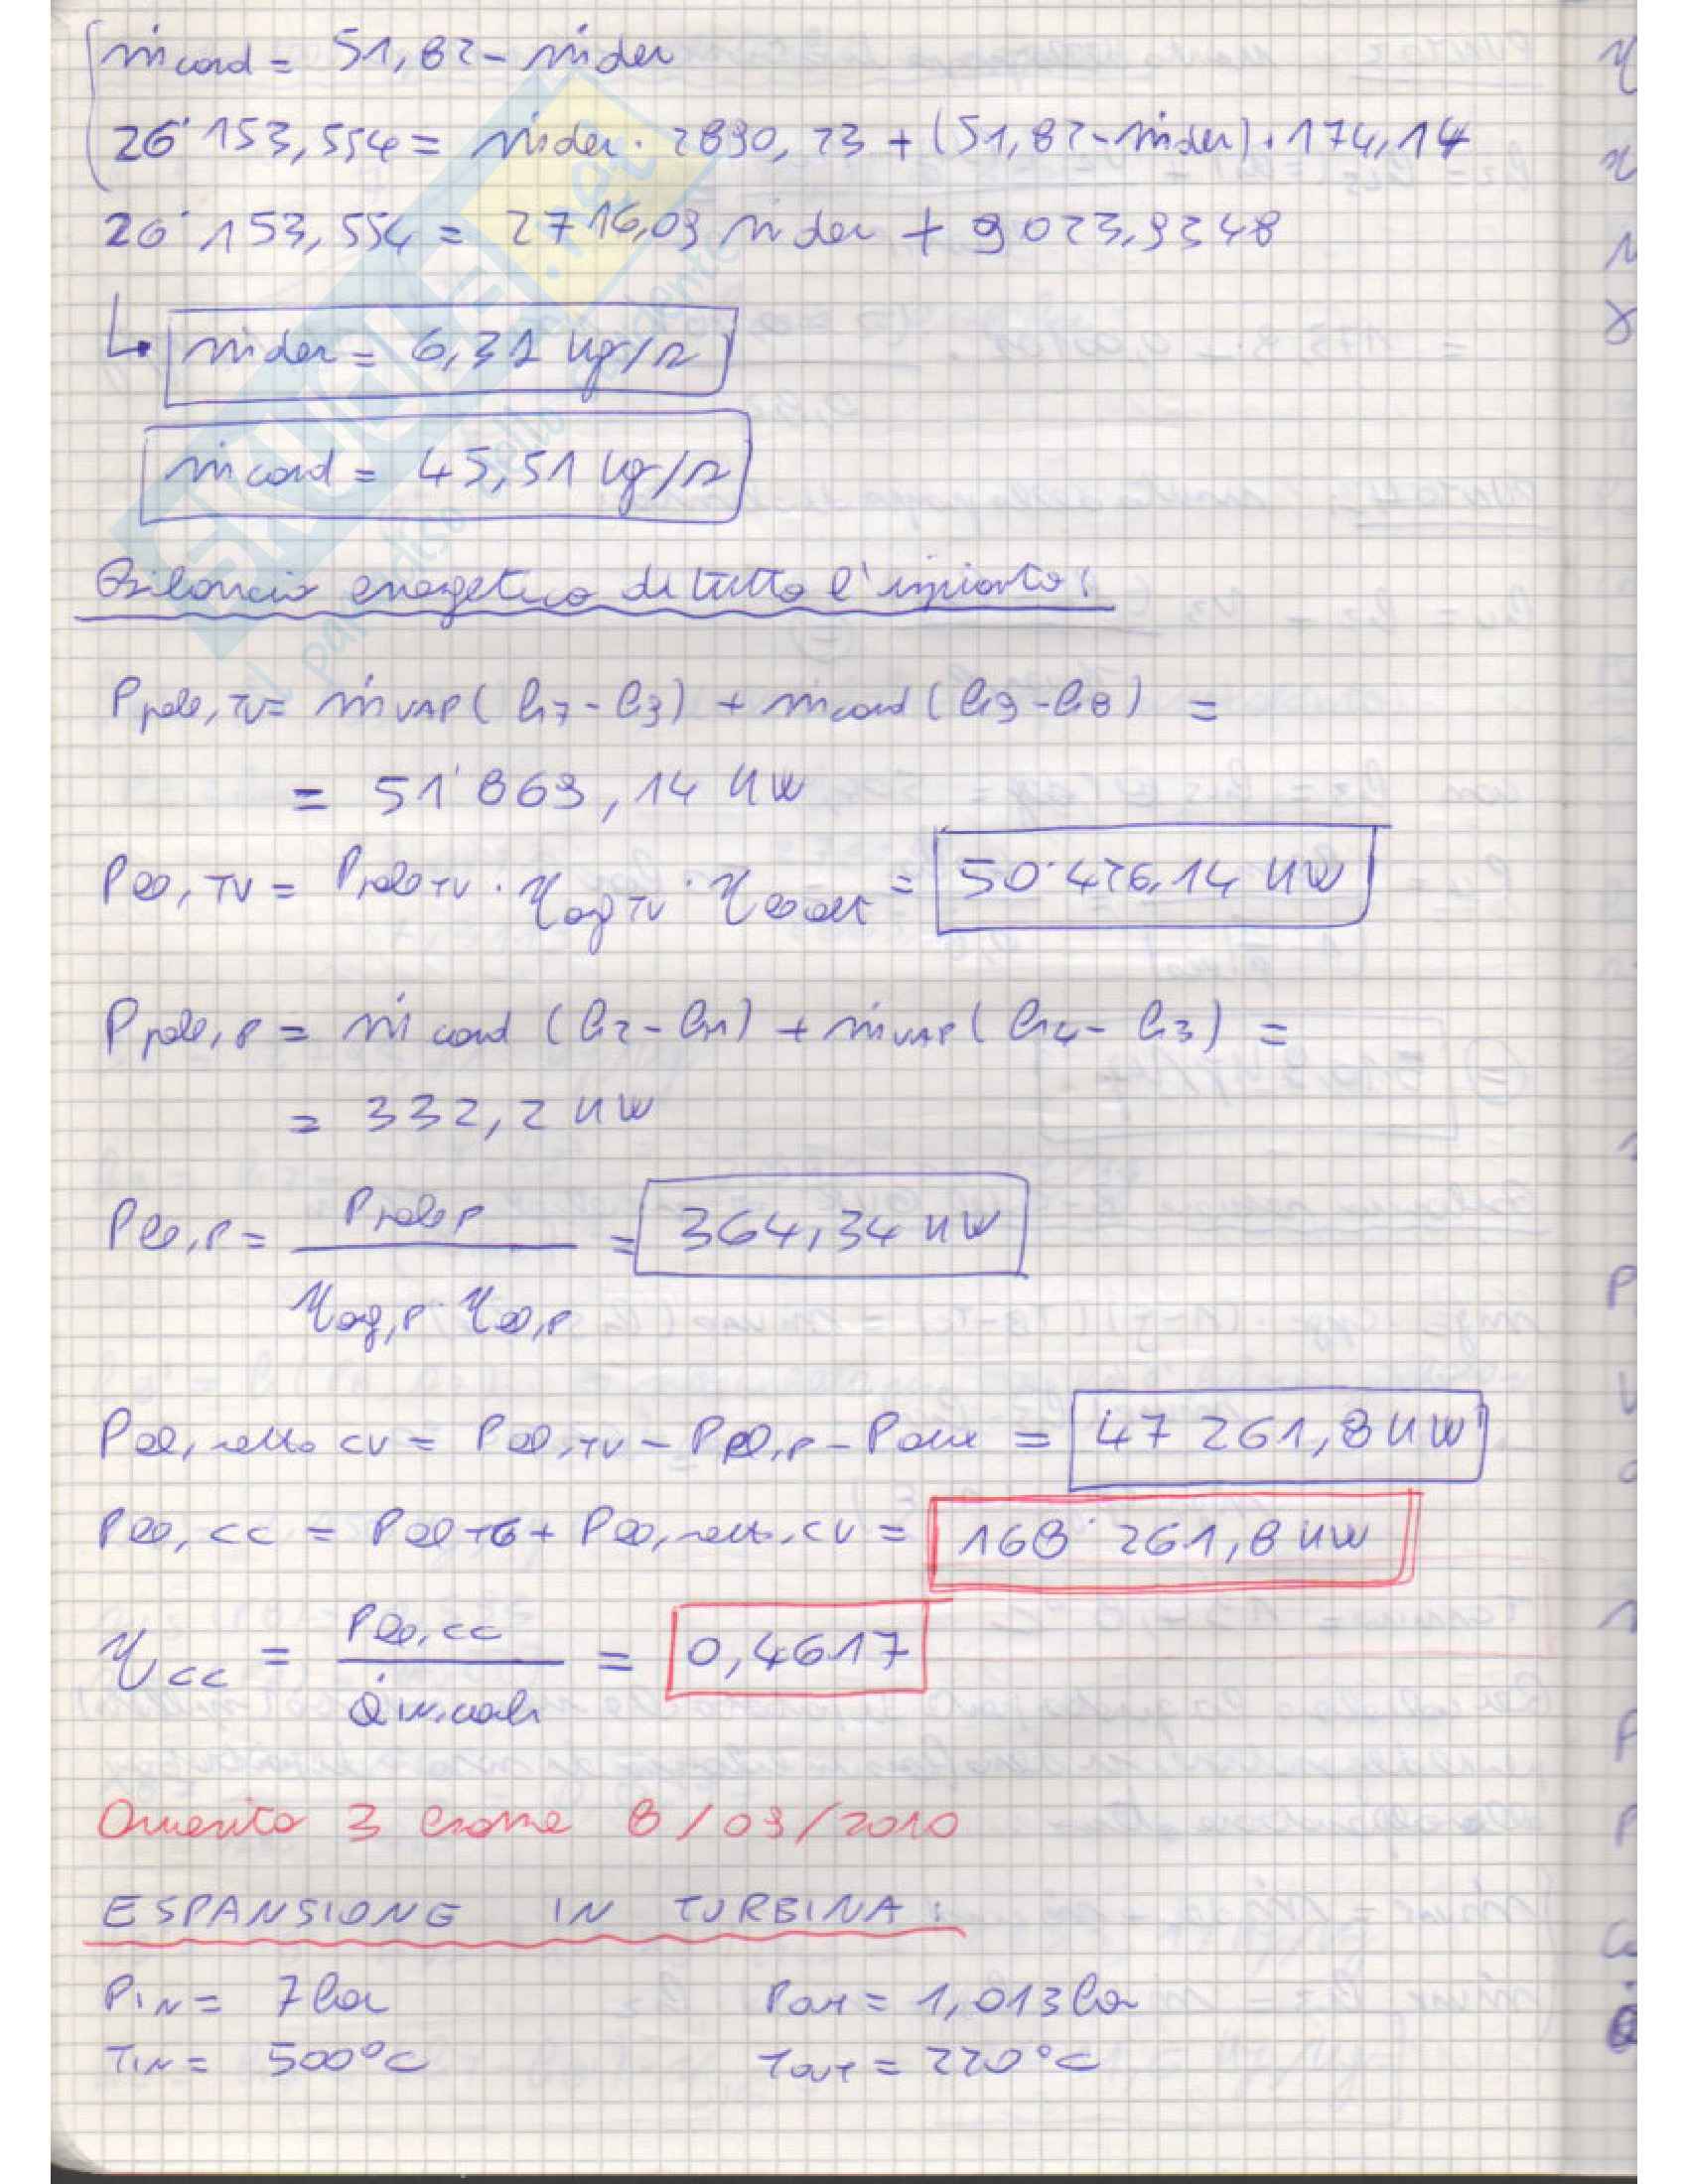 ṁcond = 51,82 - ṁder
26'153,554 = ṁder · 2890,23 + (51,82 - ṁder) · 174,14
26'153,554 = 2716,09 ṁder + 9023,9348
↳ ṁder = 6,31 kg/s
ṁcond = 45,51 kg/s
Bilancio energetico di tutto l'impianto:
Ppale,TV = ṁVAP (h7 - h3) + ṁcond (h9 - h8) =
= 51'869,14 kW
Pel,TV = Ppale TV · ηorg TV · ηel alt = 50'426,14 kW
Ppale,P = ṁcond (h2 - h1) + ṁVAP (h4 - h3) =
= 332,2 kW
Pel,P = Ppale P / ηorg,P · ηel,P = 364,34 kW
Pel,netta CV = Pel,TV - Pel,P - Paux = 47 261,8 kW
Pel,CC = Pel TG + Pel,netta,CV = 168'261,8 kW
ηCC = Pel,CC / Q̇in,comb = 0,4617
Quesito 3 Esame 8/09/2010
ESPANSIONE IN TURBINA:
PIN = 7 bar Pout = 1,013 bar
TIN = 500°C Tout = 220°C
SKUOLA.net
il paradiso dello studente